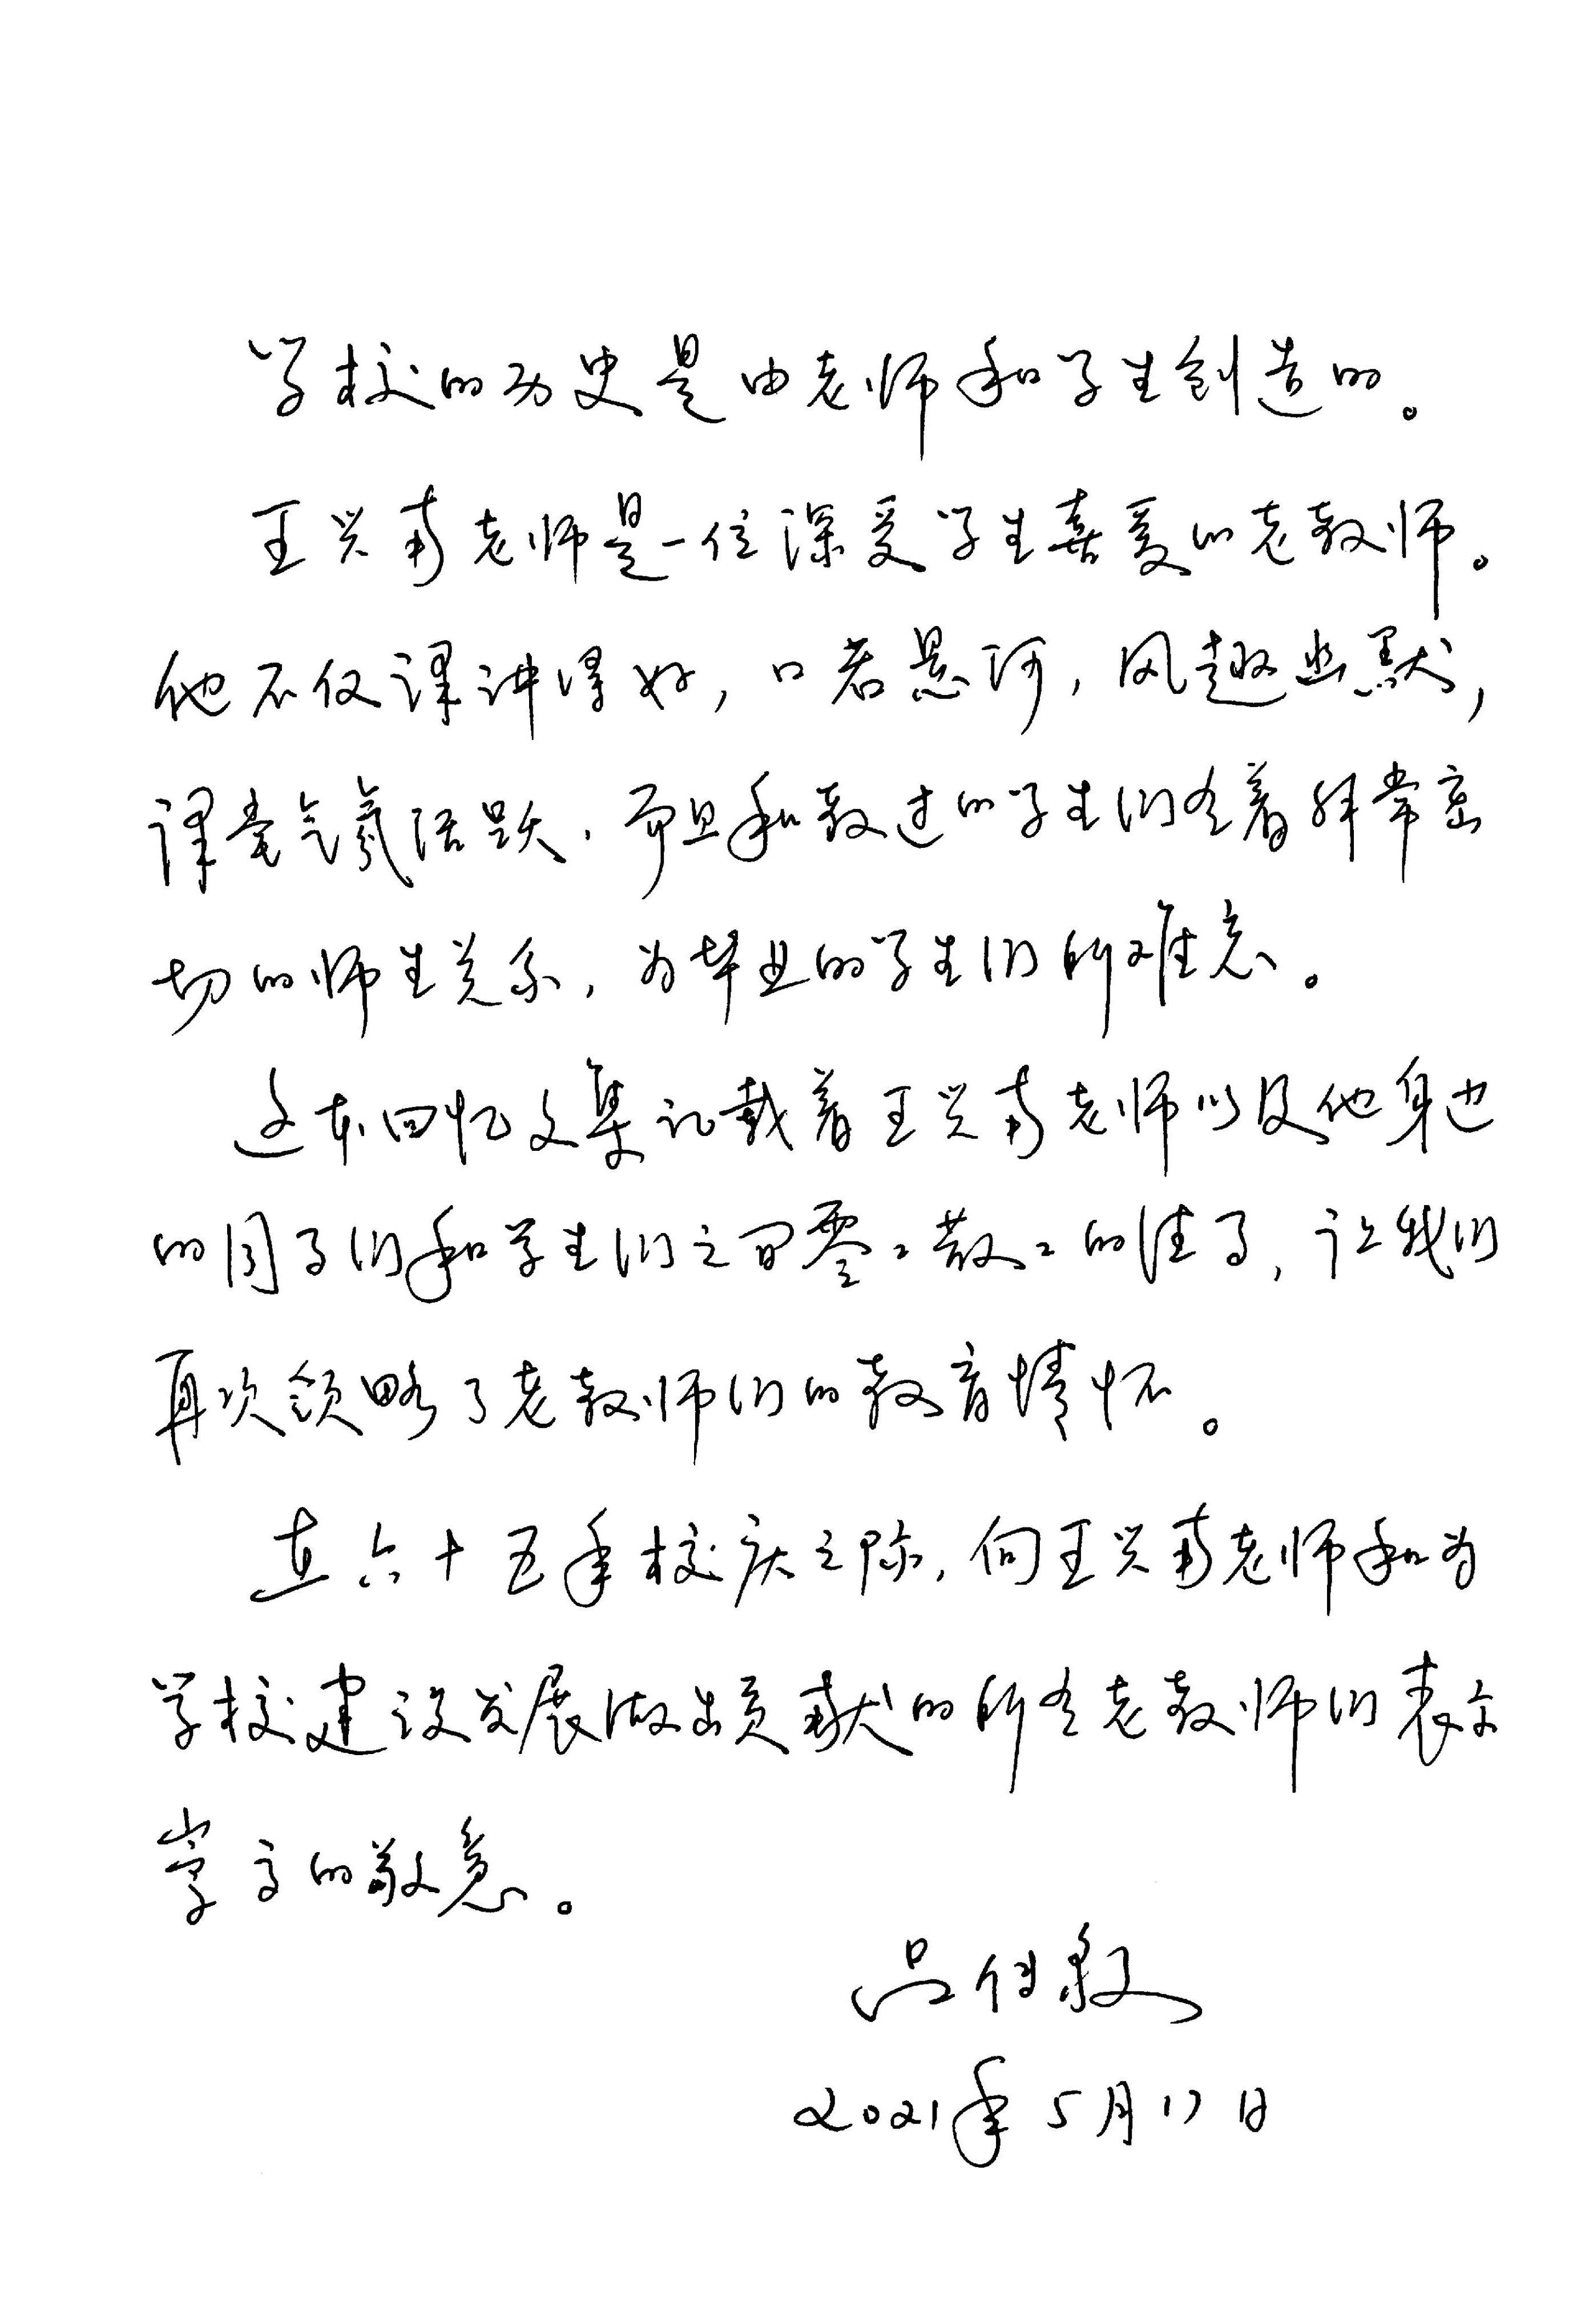 学校的历史是由老师和学生创造的。
王兴甫老师是一位深受学生喜爱的老教师。
他不仅课讲得好，口若悬河，风趣幽默，
课堂气氛活跃，而且和教过的学生们有着非常密
切的师生关系，为毕业的学生们所难忘。
这本回忆文集记载着王兴甫老师以及他身边
的同事们和学生们之间零零散散的往事，让我们
再次领略了老教师们的教育情怀。
在六十五年校庆之际，向王兴甫老师和为
学校建设发展做出贡献的所有老教师们表示
崇高的敬意。
吕
2021年5月17日